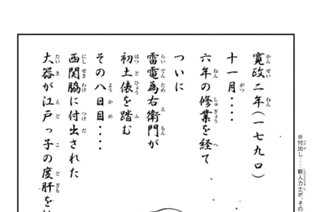 寛政二年（一七九〇）
十一月・・・・
六年の修業を経て
ついに
雷電為右衛門が
初土俵を踏む
その八日目・・・・
西関脇に付出された
大器が江戸っ子の度肝を
※付出し・・・新人力士が、その